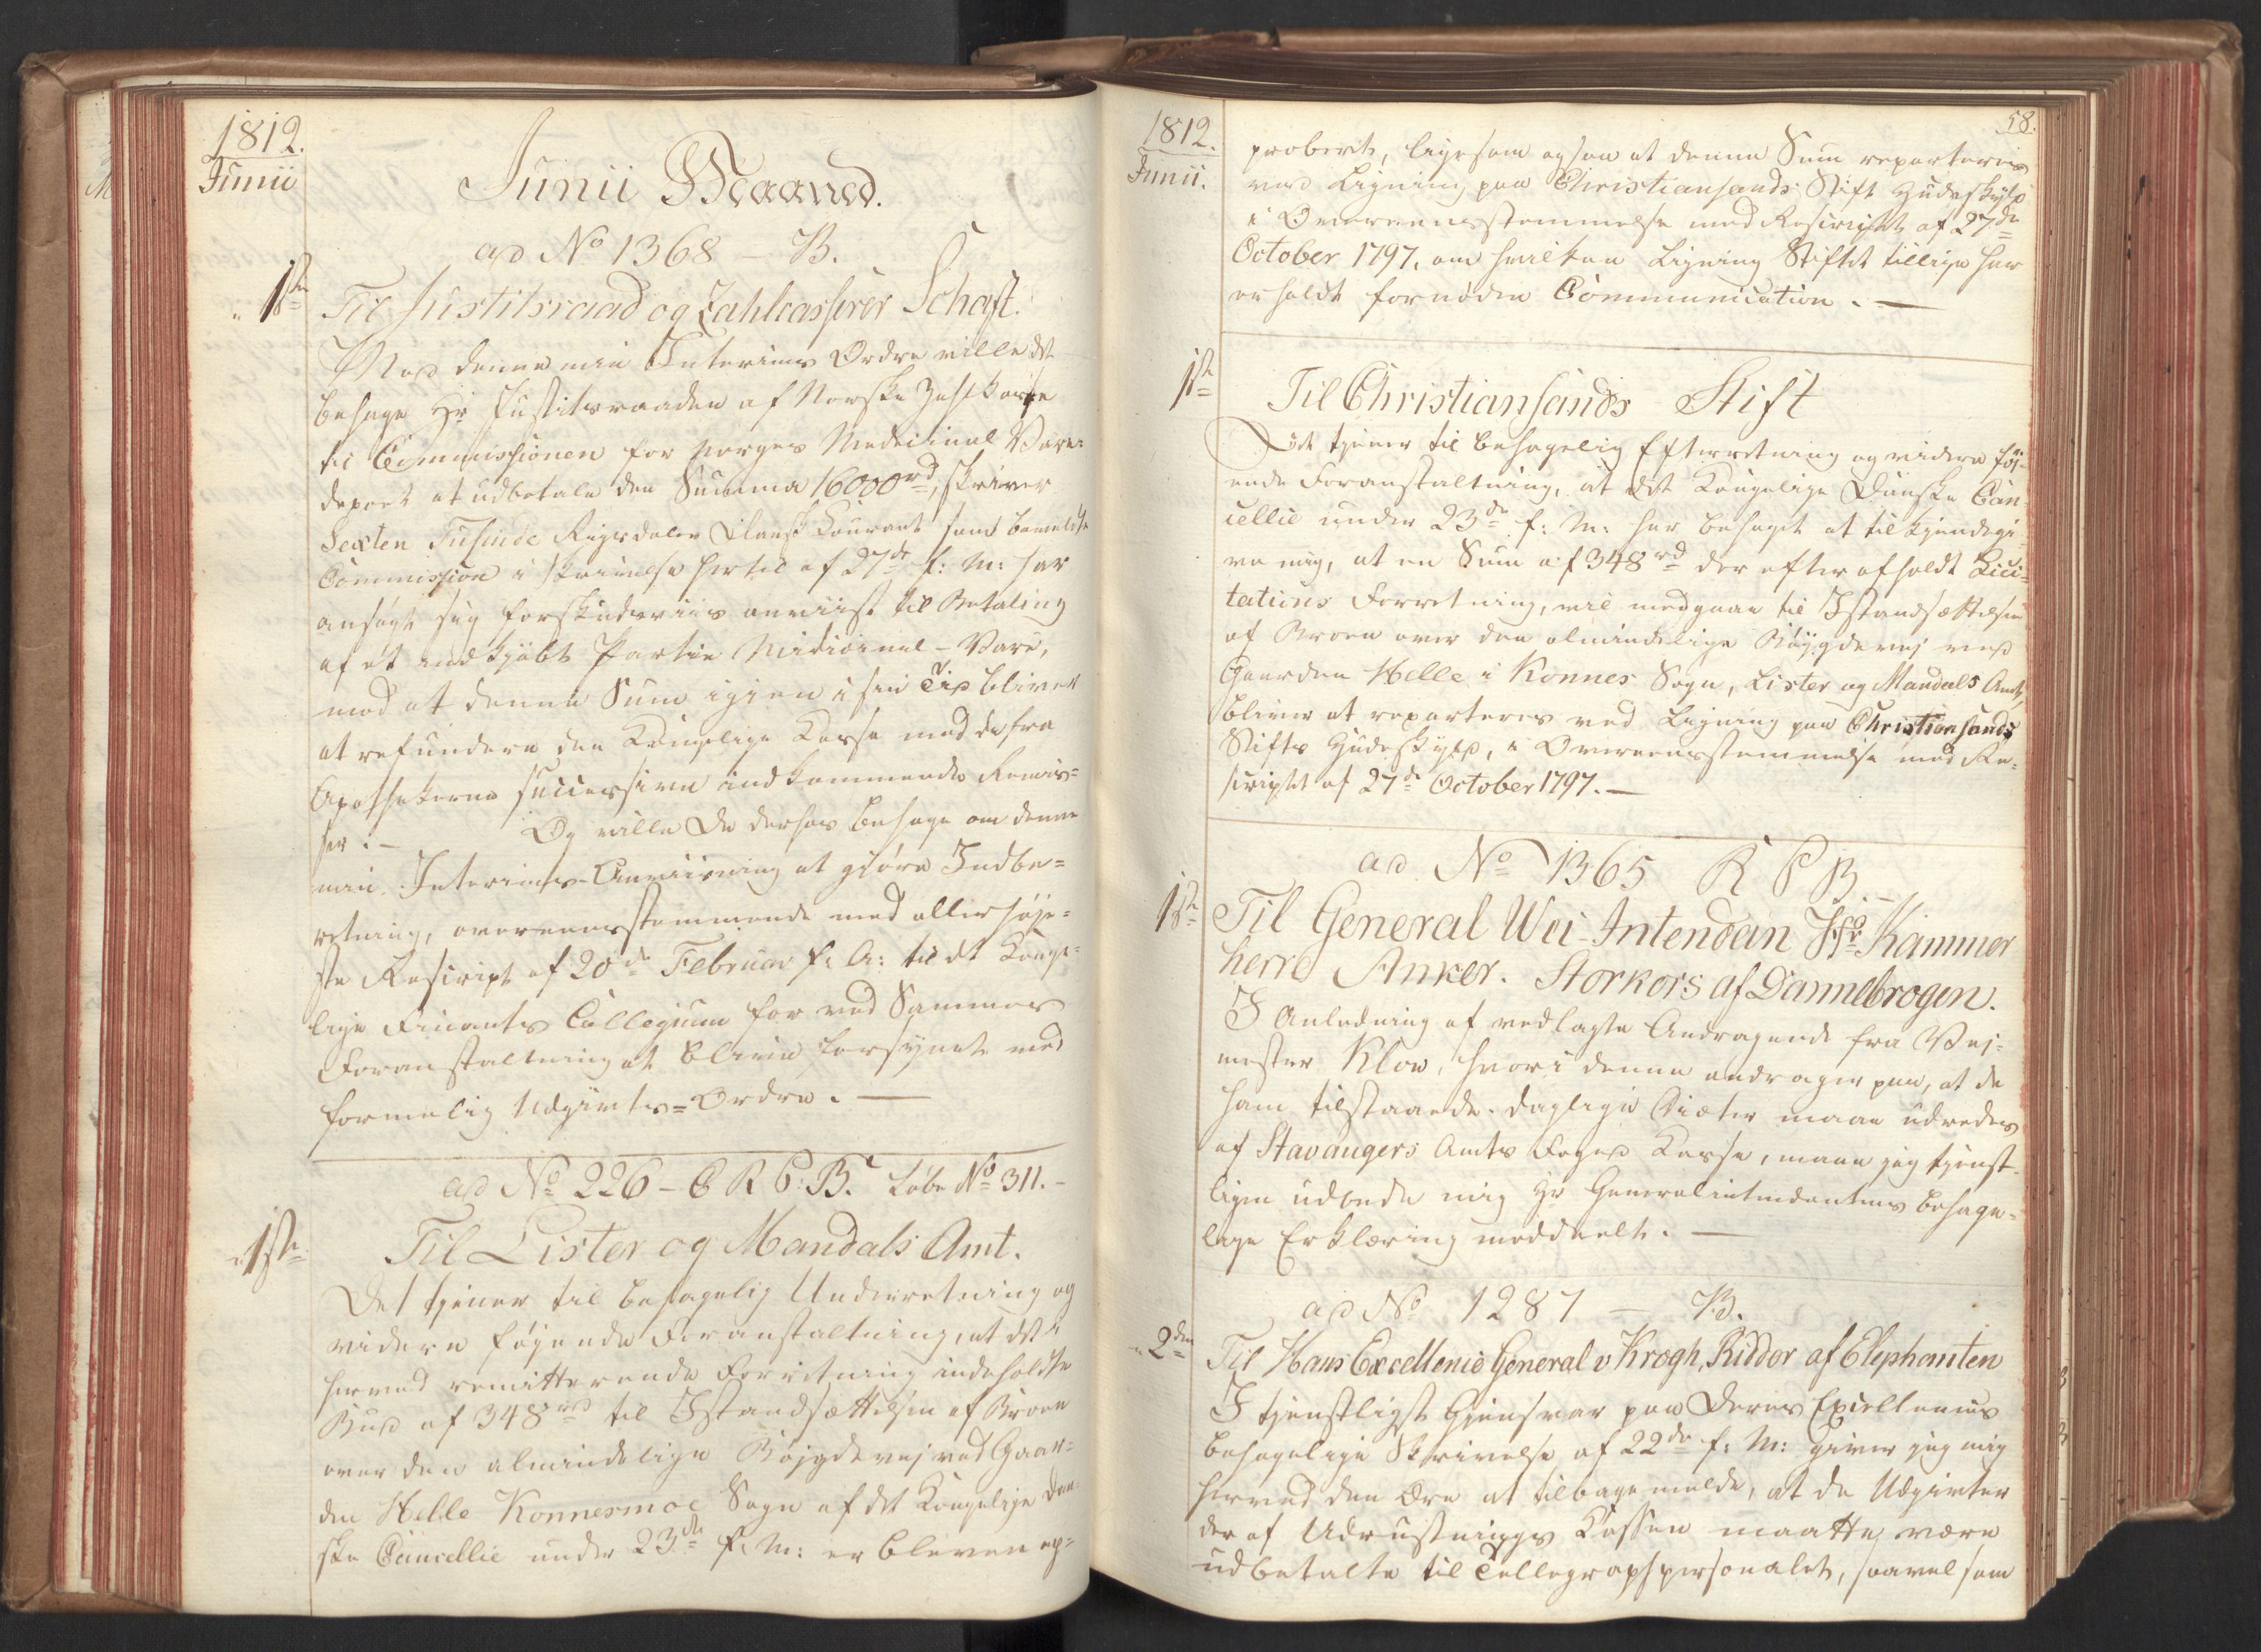 1812.
Junii
Junii Maaned.
ad No 1368 – B.
1ste
Til Justitsraad og Zahlcasserer Schaft.
Med denne min Interims Ordre ville det
behage Hr Justitsraaden af Norske Zahlkasse
til Commissionen for Norges Medicinal Vare-
depoet at udbetale den Summa 16000rd, skriver
Sexten Tusinde Rigsdaler Dansk Courant som bemeldte
Commission i Skrivelse hertil af 27de f: M: har
ansøgt sig forskudsviis anviist til Betaling
af et indkjøbt Partie Medicinal-Vare,
mod at denne Sum igien i sin Tid bliver
at refundere den Kongelige Kasse med de fra
Apothekerne successive indkommende Remis-
ser. – Og ville De derhos behage om denne
min Interims-Anviisning at gjøre Indbe-
retning, overeensstemmende med allerhøje-
ste Rescript af 20de Februar f: A: til det Konge-
lige Finants Collegium for ved Sammes
Foranstaltning at blive forsynet med
formelig Udgivts-Ordre. –
ad No 226 – C R P. B. Løbe No 311. –
1ste
Til Lister og Mandals Amt.
Det tjener til behagelig Underretning og
videre føjende Foranstaltning, at det i
herved remitterende Forretning indeholdte
Bud af 348rd til Istandsættelsen af Broen
over den almindelige Bøjgdevej ved Gaar-
den Helle Konnesmoe Sogn af det Kongelige Dan-
ske Cancellie under 23de f: M: er bleven ap-
58.
1812.
Junii.
proberet, ligesom ogsaa at denne Sum reparteres
ved Ligning paa Christiansands Stift Hudeskyld
i Overeensstemmelse med Rescript af 27de
October 1797, om hvilken Ligning Stiftet tillige har
erholdt fornøden Communication. –
1ste
Til Christiansands Stift
Det tjener til behagelig Efterretning og videre føj-
ende Foranstaltning, at det Kongelige Danske Can-
cellie under 23de f: M: har behaget at tilkjendegi-
ve mig, at en Sum af 348rd der efter afholdt Lici-
tations Forretning, vil medgaae til Istandsættelsen
af Broen over den almindelige Bøjgdevej ved
Gaarden Helle i Konnes Sogn, Lister og Mandals Amt,
bliver at reparteres ved Ligning paa Christiansands
Stifts Hudeskyld, i Overeensstemmelse med Re-
scriptet af 27de October 1797. –
ad No 1365 R P B. –
1ste
Til General Vei-Intendan Hr Kammer
herre Anker. Storkors af Dannebrogen.
I Anledning af vedlagte Andragende fra Vej-
mester Klow, hvori denne andrager paa, at de
ham tilstaaede daglige Diæter maae udredes
af Stavangers Amts Foged Kasse, maae jeg tjenst-
ligen udbede mig Hr Generalintendantens behage-
lige Erklæring meddeelt. –
ad No 1287 – B.
2den
Til Hans Excellence General v Krogh, Ridder af Elephanten
I tjenstligst Gjensvar paa Deres Excellences
behagelige Skrivelse af 22de f: M: giver jeg mig
herved den Ære at tilbage melde, at de Udgivter
der af Udrustnings Cassen maatte være
udbetalte til Tellegraphpersonalet, saavel som